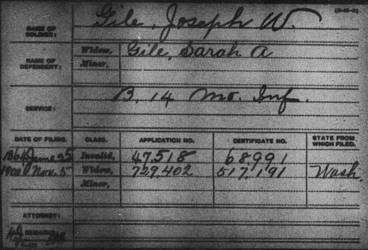 NAME OF SOLDIER: Gile, Joseph W.
NAME OF DEPENDENT: Widow, Gile, Sarah A
Minor,
SERVICE: B, 14 Mo. Inf.
DATE OF FILING. CLASS. APPLICATION NO. CERTIFICATE NO. STATE FROM WHICH FILED.
1864 June 25 Invalid, 47,518 68,991
1900 Nov. 5 Widow, 729,402 517,191 Wash.
Minor,
ATTORNEY: